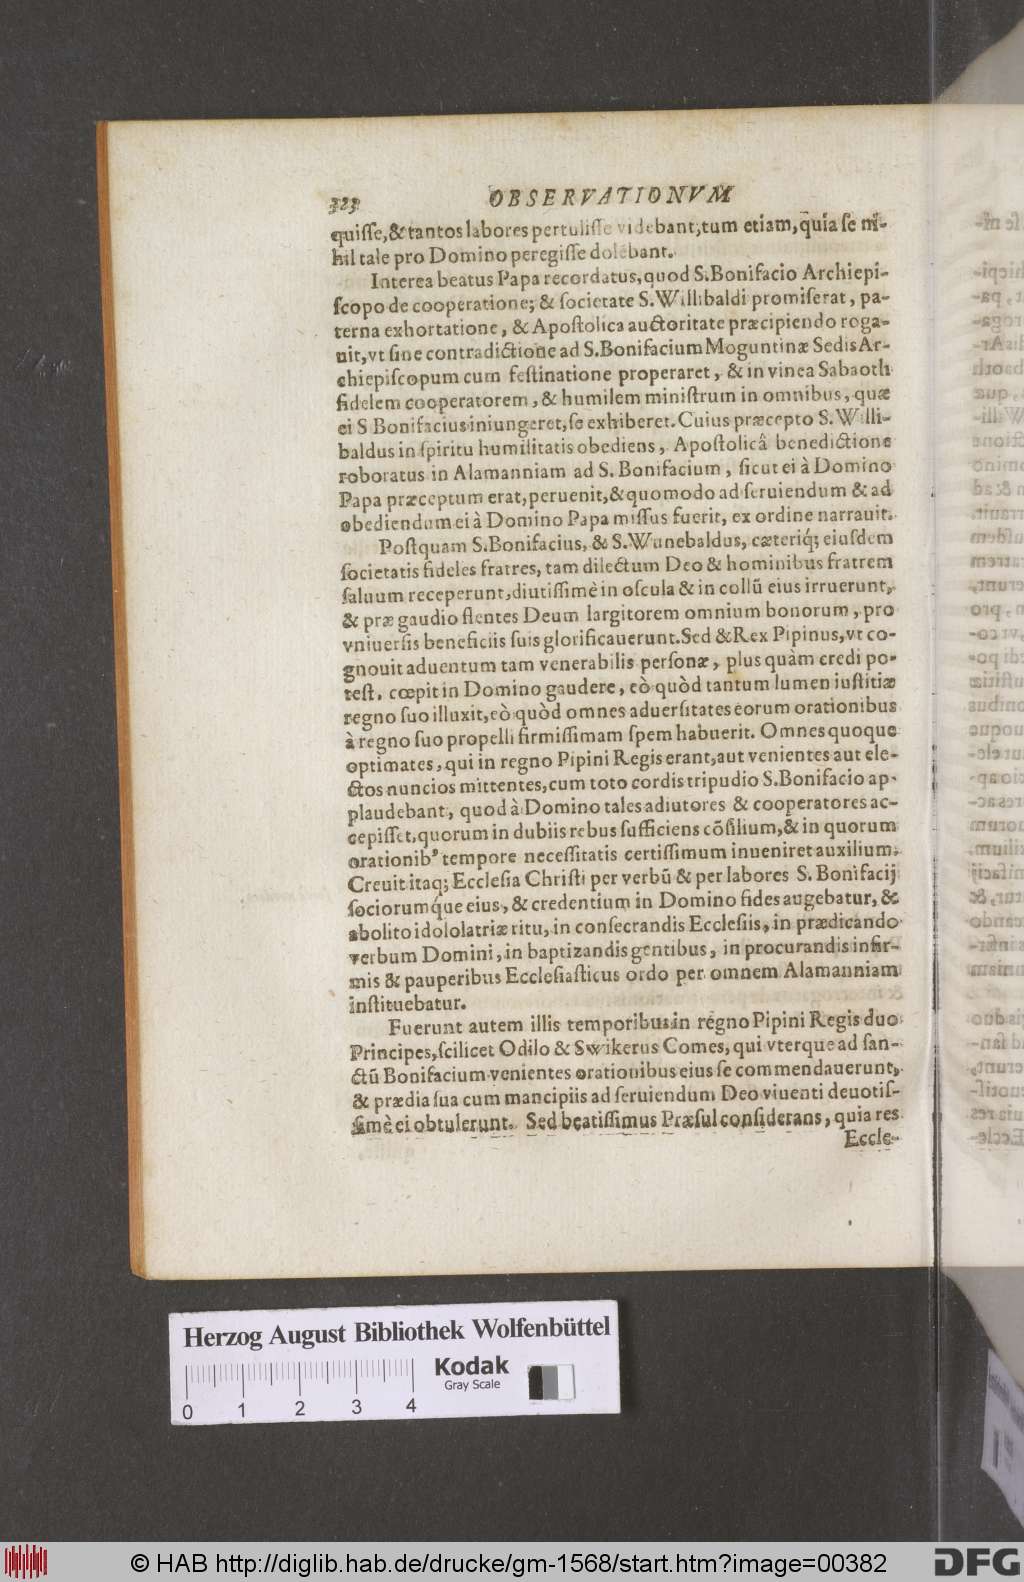 323 OBSERVATIONVM
quisse,& tantos labores pertulisse videbant;tum etiam,quia se ni-
hil tale pro Domino peregisse dolebant.
Interea beatus Papa recordatus,quod S.Bonifacio Archiepi-
scopo de cooperatione; & societate S.Willibaldi promiserat, pa-
terna exhortatione, & Apostolica auctoritate præcipiendo roga-
uit,vt sine contradictione ad S.Bonifacium Moguntinæ Sedis Ar-
chiepiscopum cum festinatione properaret, & in vinea Sabaoth
fidelem cooperatorem, & humilem ministrum in omnibus, quæ
ei S Bonifacius iniungeret,se exhiberet.Cuius præcepto S.Willi-
baldus in spiritu humilitatis obediens, Apostolicâ benedictione
roboratus in Alamanniam ad S. Bonifacium, sicut ei à Domino
Papa præceptum erat,peruenit,& quomodo ad seruiendum & ad
obediendum ei à Domino Papa missus fuerit, ex ordine narrauit.
Postquam S.Bonifacius, & S.Wunebaldus, cæteriq́; eiusdem
societatis fideles fratres, tam dilectum Deo & hominibus fratrem
saluum receperunt,diutissimè in oscula & in collū eius irruerunt,
& præ gaudio flentes Deum largitorem omnium bonorum, pro
vniuersis beneficiis suis glorificauerunt.Sed & Rex Pipinus,vt co-
gnouit aduentum tam venerabilis personæ, plus quàm credi po-
test, cœpit in Domino gaudere, eò quòd tantum lumen iustitiæ
regno suo illuxit,eò quòd omnes aduersitates eorum orationibus
à regno suo propelli firmissimam spem habuerit. Omnes quoque
optimates, qui in regno Pipini Regis erant,aut venientes aut ele-
ctos nuncios mittentes,cum toto cordis tripudio S.Bonifacio ap-
plaudebant, quod à Domino tales adiutores & cooperatores ac-
cepisset,quorum in dubiis rebus sufficiens cōsilium,& in quorum
orationib' tempore necessitatis certissimum inueniret auxilium.
Creuit itaq; Ecclesia Christi per verbū & per labores S. Bonifacij
sociorumq́ue eius, & credentium in Domino fides augebatur, &
abolito idololatriæ ritu, in consecrandis Ecclesiis, in prædicando
verbum Domini, in baptizandis gentibus, in procurandis infir-
mis & pauperibus Ecclesiasticus ordo per omnem Alamanniam
instituebatur.
Fuerunt autem illis temporibus in regno Pipini Regis duo
Principes,scilicet Odilo & Swikerus Comes, qui vterque ad san-
ctū Bonifacium venientes orationibus eius se commendauerunt,
& prædia sua cum mancipiis ad seruiendum Deo viuenti deuotis-
simè ei obtulerunt. Sed beatissimus Præsul considerans, quia res
Eccle-
Herzog August Bibliothek Wolfenbüttel
Kodak
Gray Scale
0 1 2 3 4
© HAB http://diglib.hab.de/drucke/gm-1568/start.htm?image=00382
DFG